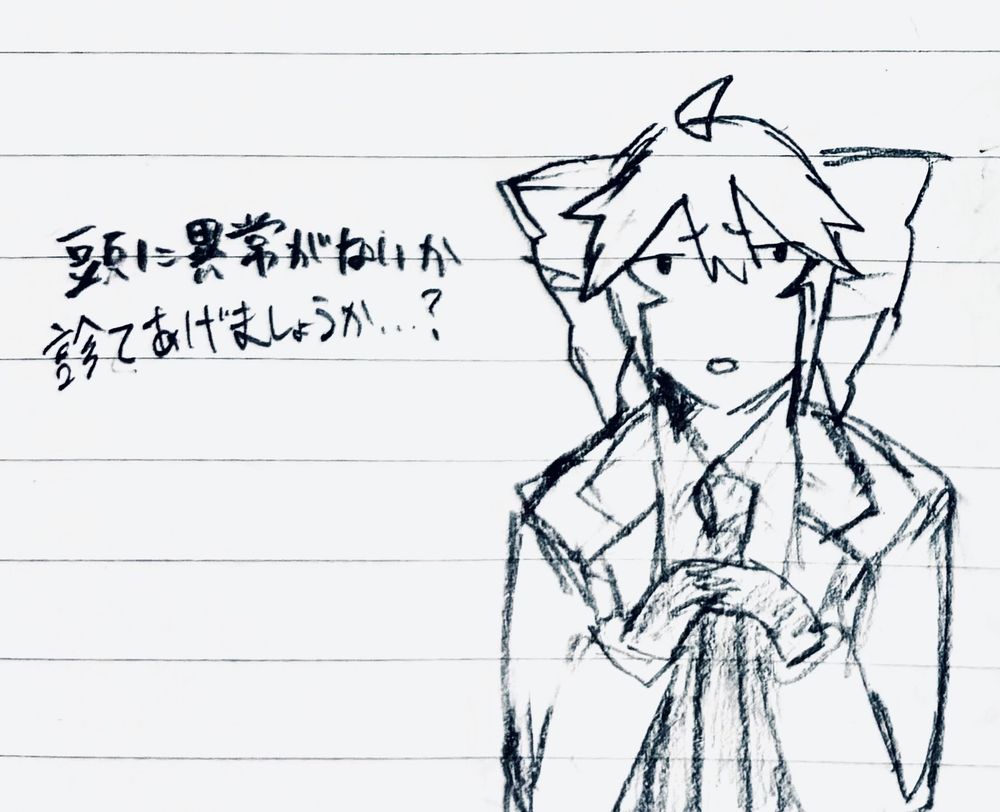 頭に異常がないか
診てあげましょうか...?